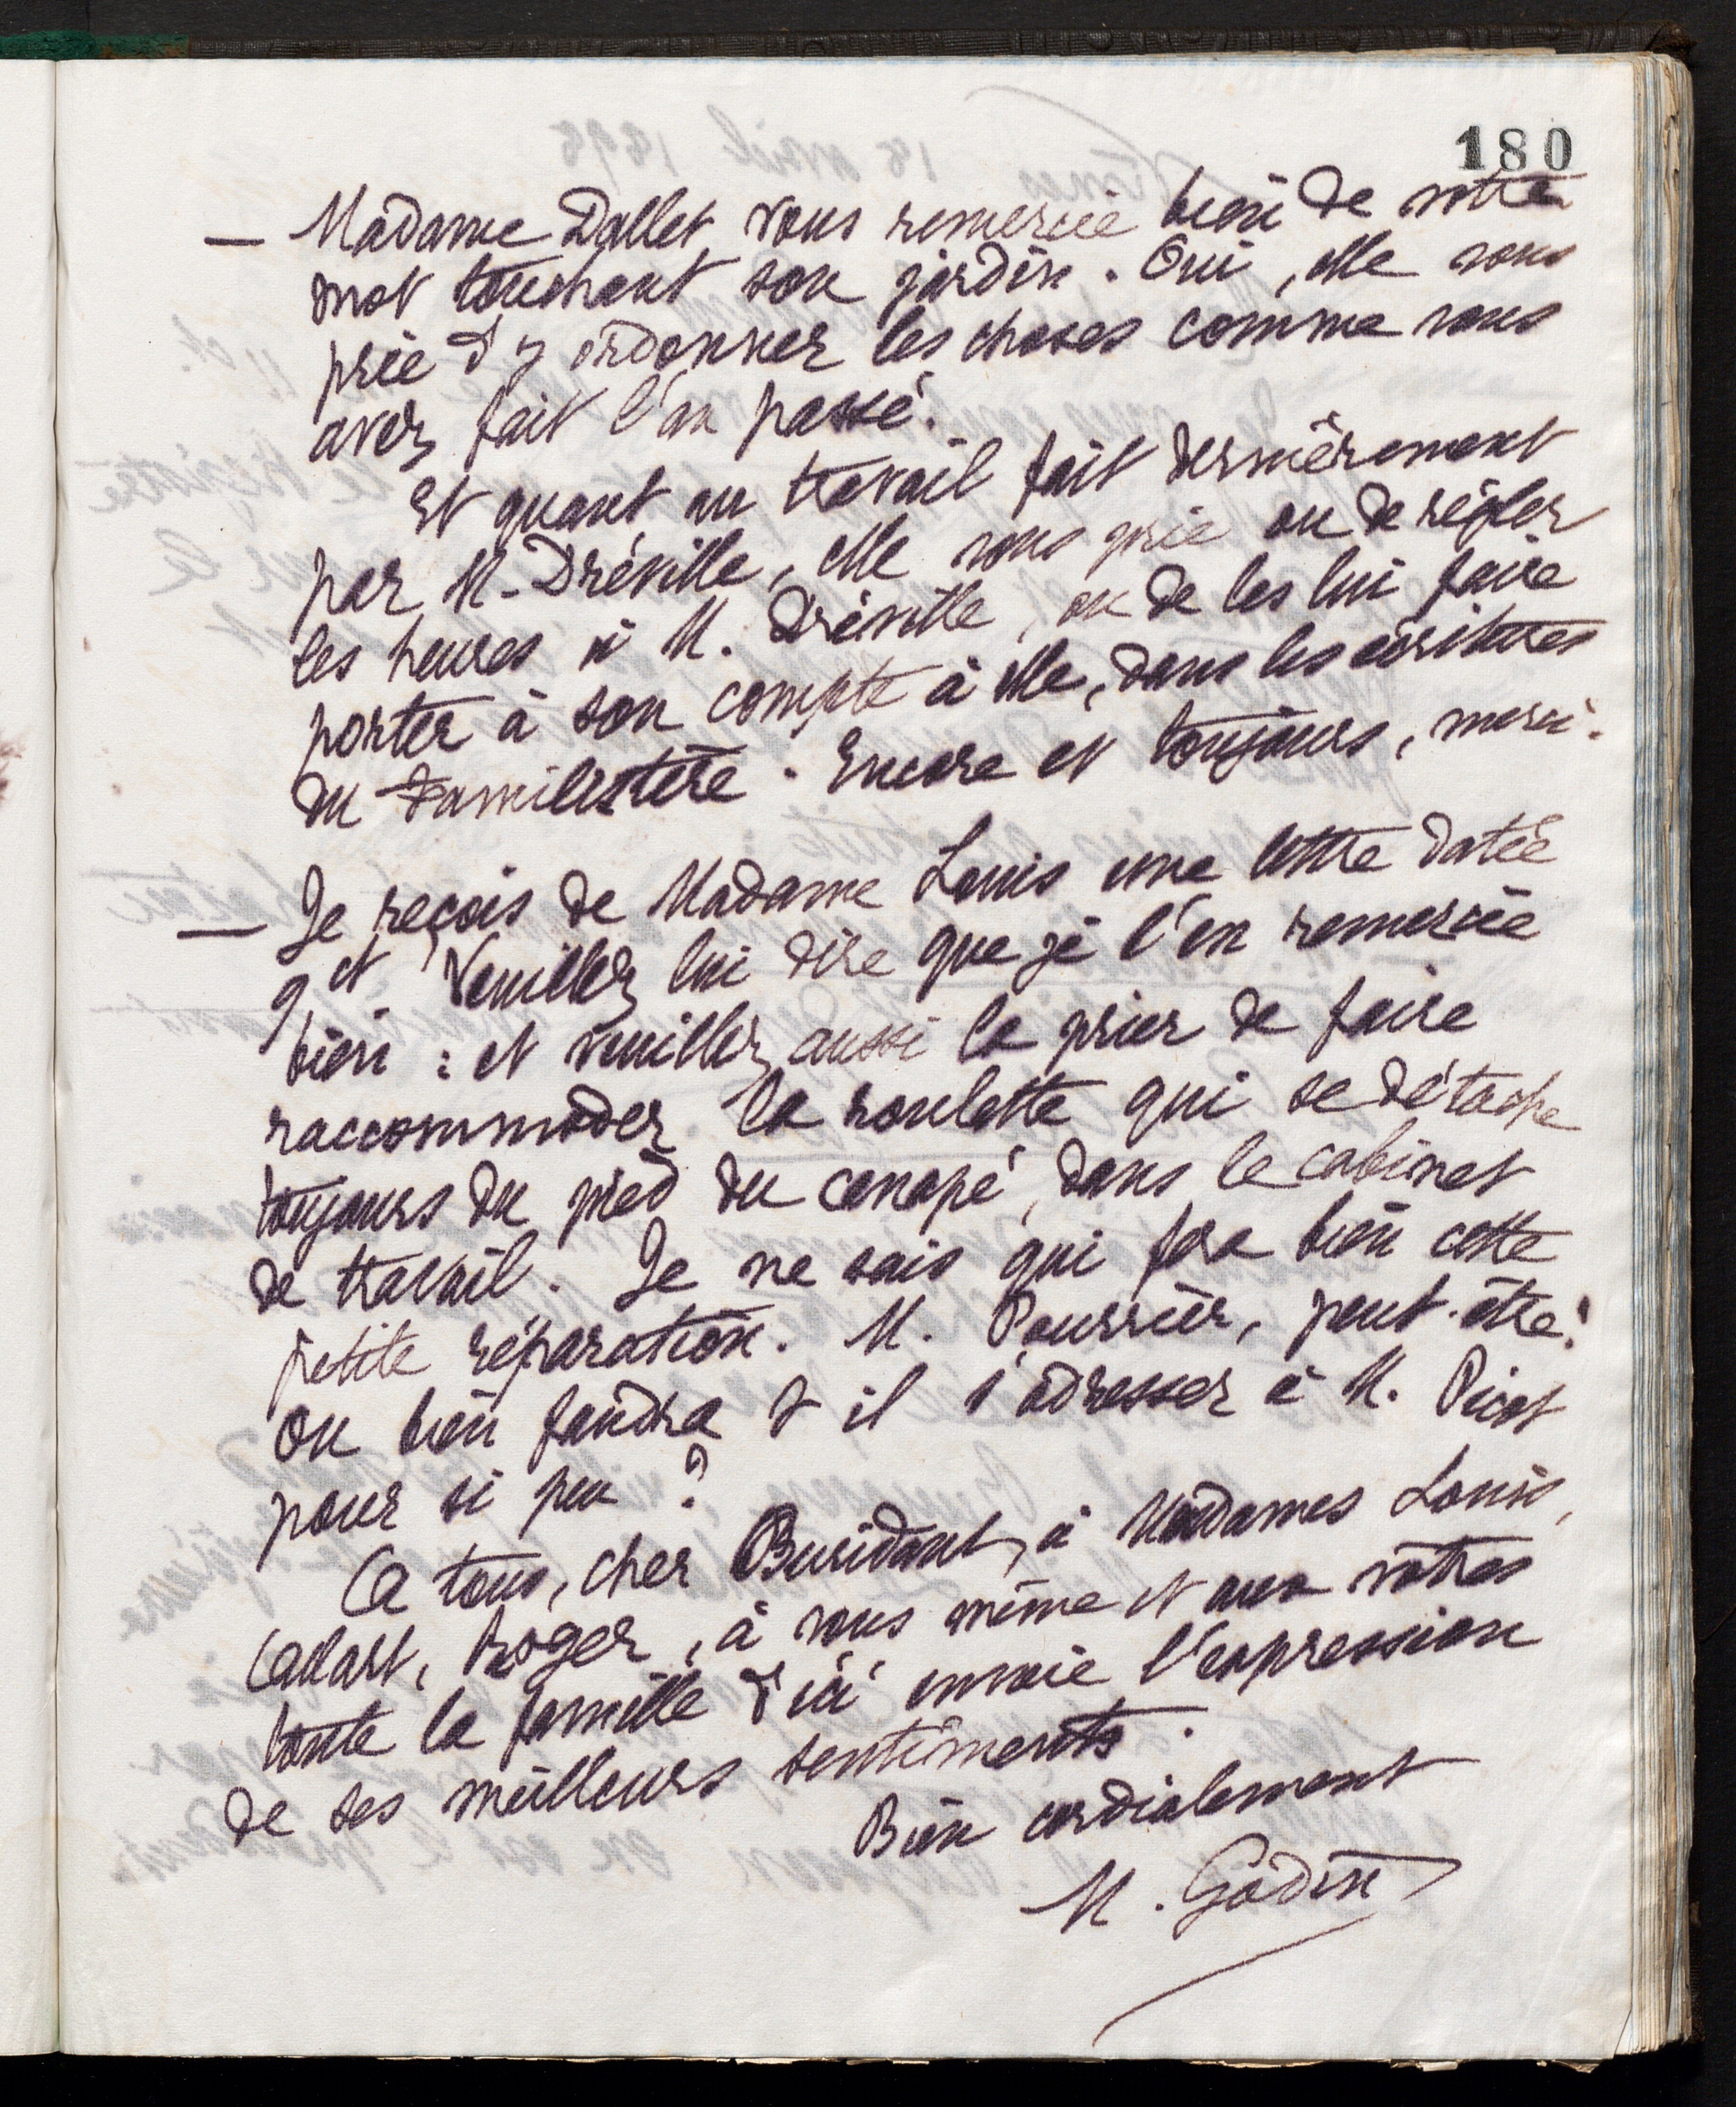 180
— Madame Dallet vous remercie bien de votre
mot touchant son jardin. Oui, elle vous
prie d'y ordonner les choses comme vous
avez fait l'an passé.
Et quant au travail fait dernièrement
par M. Dréville, elle vous prie ou de régler
les heures à M. Dréville, ou de les lui faire
porter à son compte à elle, dans les écritures
du Familistère. Encore et toujours, merci.
— Je reçois de Madame Louis une lettre datée
9 ct. Veuillez lui dire que je l'en remercie
bien : et veuillez aussi la prier de faire
raccommoder la roulette qui se détache
toujours du pied du canapé, dans le cabinet
de travail. Je ne sais qui fera bien cette
petite réparation. M. Pourrier, peut-être!
Ou bien faudra t il s'adresser à M. Picot
pour si peu ?
A tous, cher Buridant, à Mesdames Louis,
Allart, Roger, à vous même et aux vôtres
toute la famille d'ici envoie l'expression
de ses meilleurs sentiments.
Bien cordialement
M. Godin